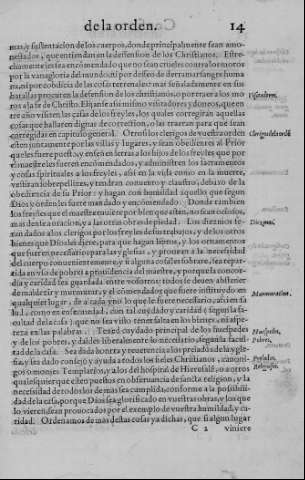 de la orden. 14
mas, y sustentacion de los cuerpos, donde principalmente sean amo-
nestados, que entiendan en la defension de los Christianos. Estre-
chamente les sea encomendado que no sean crueles contra los moros
por la vanagloria del mundo, ni por desseo de derramar sangre huma
na, ni por cobdicia de las cosas terrenales: mas señaladamente en sus
batallas procuren la defension de los christianos, o por traer a los mo
ros a la fe de Christo. Elijanse assi mismo visitadores y doneos, que en
tre año visiten las casas de los freyles, los quales corregirán aquellas
cosas que hallaren dignas de correction, o las traeran para que sean
corregidas en capitulo general. Otrosi los clerigos de vuestra orden
esten juntamente por las villas y lugares, y sean obedientes al Prior
que les fuere puesto, y enseñen a leer a los hijos de los freyles que por
el maestre les fueren encomendados, y administren los sacramentos
y cosas spirituales a los freyles, assi en la vida como en la muerte,
vestiran sobrepellizes, y tendran conuento y claustro, debaxo de la
obediencia de su Prior: y hagan con humildad aquello que segun
Dios y orden les fuere mandado y encomendado. Donde tambien
los freyles que el maestre viere por bien que esten, no sean ociosos,
mas den se a oracion, y a las otras obras de piedad. Los diezmos se-
an dados a los clerigos por los freyles de sus trabajos, y de los otros
bienes que Dios les diere, para que hagan libros, y los ornamentos
que fueren necessarios para las yglesias, y prouean a la necessidad
del cuerpo conuenientemente, y si alguna cosa les sobrare, sea repar-
tida en vso de pobres a prouidencia del maestre, y porque la concor-
dia y caridad sea guardada entre vosotros: todos se deuen abstener
de maldezir y murmurar, y el comendador que fuere instituydo en
qualquier lugar, de a cada vno lo que le fuere necessario, assi en sa
lud, como en enfermedad, con tal cuydado y caridad segun la fa-
cultad de la casa) que no sea visto ser amargo en los bienes, ni aspe-
reza en las palabras. Tened cuydado principal de los huespedes
y de los pobres, y daldes liberalmente lo necessario, segun la facul-
tad de la casa. Sea dada honra y reuerencia a los prelados de la ygle-
sia, y sea dado consejo y ayuda a todos los fieles Christianos, a canoni-
gos o monjes Templarios, y a los del hospital de Hierusalē, o a otros
qualesquier que esten puestos en obseruancia de sancta religion, y la
necessidad de todos los demas sea cumplida, conforme a la possibili-
dad de la casa, porque Dios sea glorificado en vuestras obras, y los que
lo vieren sean prouocados por el exemplo de vuestra humildad, y ca-
ridad. Ordenamos de mas destas cosas ya dichas, que si algun lugar
C 2 viniere
Visitadores.
Clerigos de la orden
Diezmos.
Murmuration.
Huespedes,
Pobres,
Perlados.
Religiosos.